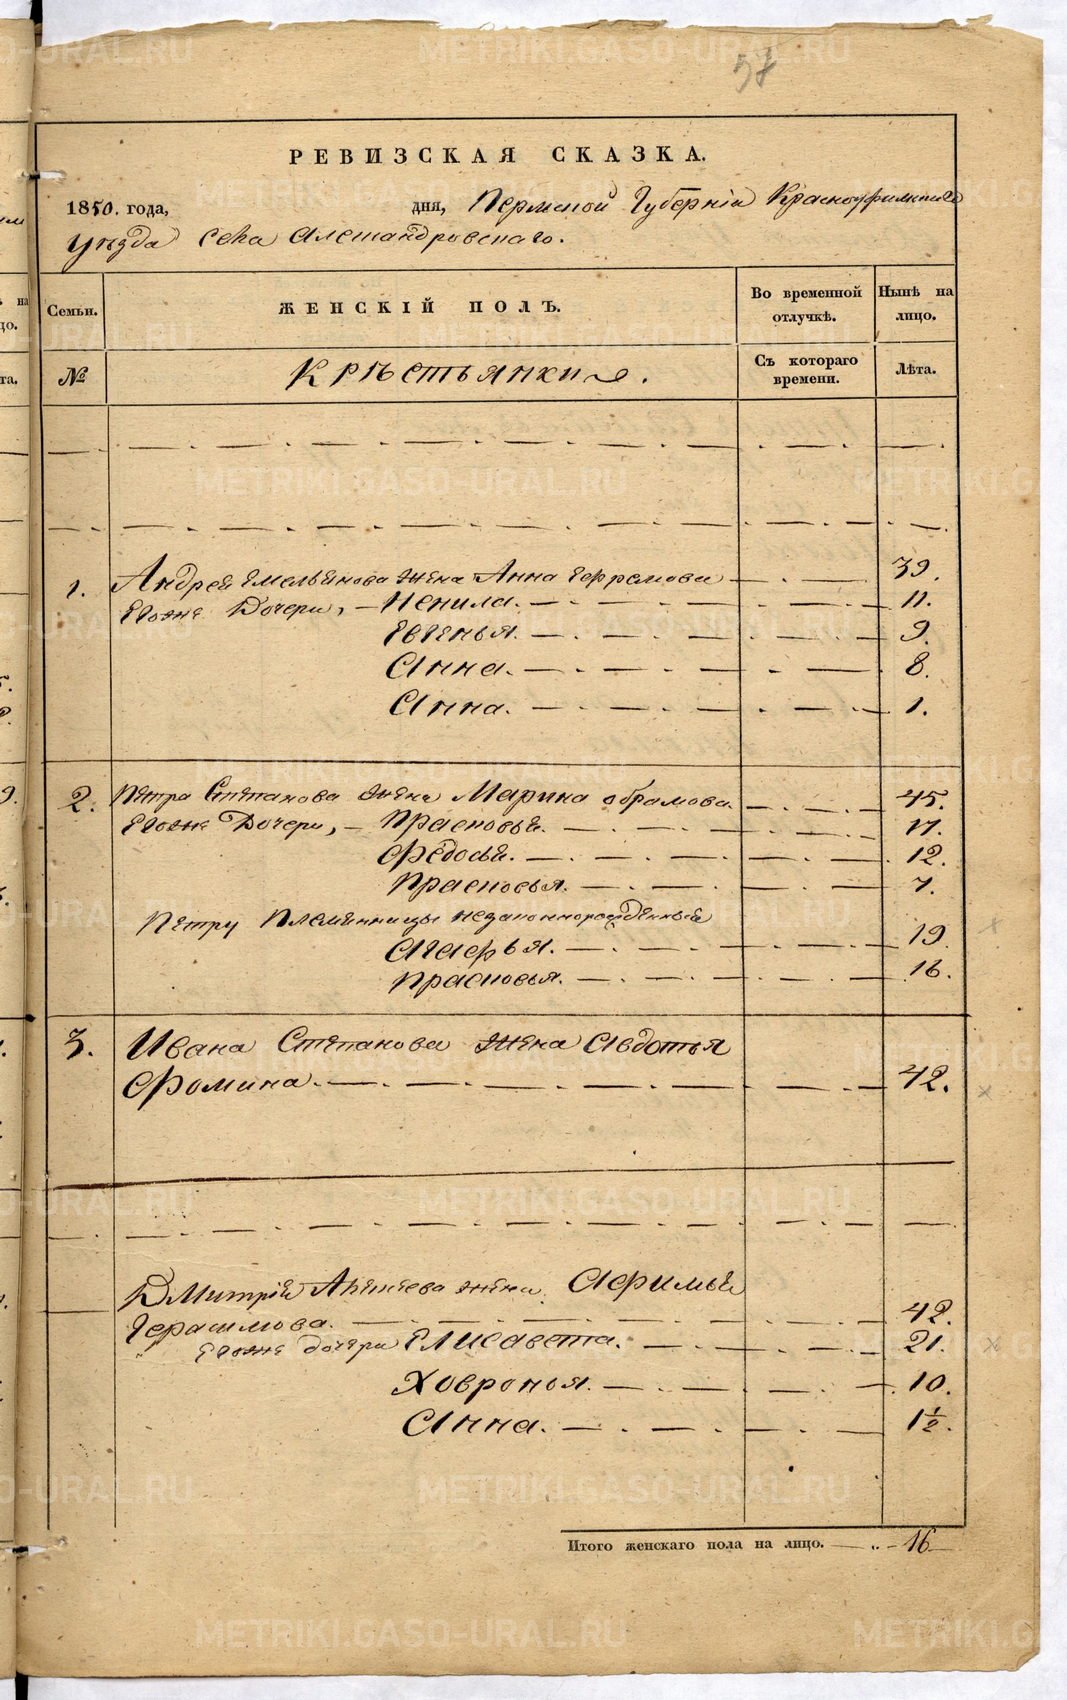 57
РЕВИЗСКАЯ СКАЗКА.
1850. года, дня, Пермской Губерніи Красноуфимскаго
Уѣзда села Александровскаго.
Семьи. ЖЕНСКІЙ ПОЛЪ. Во временной отлучкѣ. Нынѣ на лицо.
№ Крѣстьянки. Съ котораго времени. Лѣта.
1. Андрея Емельянова жена Анна Ефремова 39.
Егоже Дочери, Ненила. 11.
Евгенья. 9.
Анна. 8.
Анна. 1.
2. Петра Степанова жена Марина Абрамова 45.
Егоже Дочери, Прасковья. 17.
Федосья. 12.
Прасковья. 7.
Петру Племянницы незаконнорожденныя
Агафья. 19.
Прасковья. 16.
3. Ивана Степанова жена Авдотья
Фомина. 42.
Дмитрія жена Афимья
Герасимова. 42.
Егоже дочери Елисавета. 21.
Ховронья. 10.
Анна. 1 1/2.
Итого женскаго пола на лицо. 16
METRIKI.GASO-URAL.RU